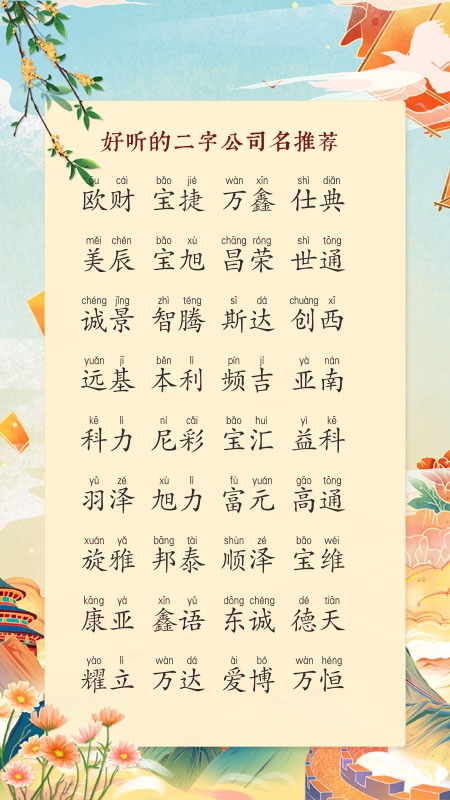 好听的二字公司名推荐
ōu cái bǎo jié wàn xīn shì diǎn
欧财 宝捷 万鑫 仕典
měi chén bǎo xù chāng róng shì tōng
美辰 宝旭 昌荣 世通
chéng jǐng zhì téng sī dá chuàng xī
诚景 智腾 斯达 创西
yuǎn jī běn lì pín jí yà nán
远基 本利 频吉 亚南
kē lì ní cǎi bǎo huì yì kē
科力 尼彩 宝汇 益科
yǔ zé xù lì fù yuán gāo tōng
羽泽 旭力 富元 高通
xuán yǎ bāng tài shùn zé bǎo wéi
旋雅 邦泰 顺泽 宝维
kāng yà xīn yǔ dōng chéng dé tiān
康亚 鑫语 东诚 德天
yào lì wàn dá ài bó wàn héng
耀立 万达 爱博 万恒